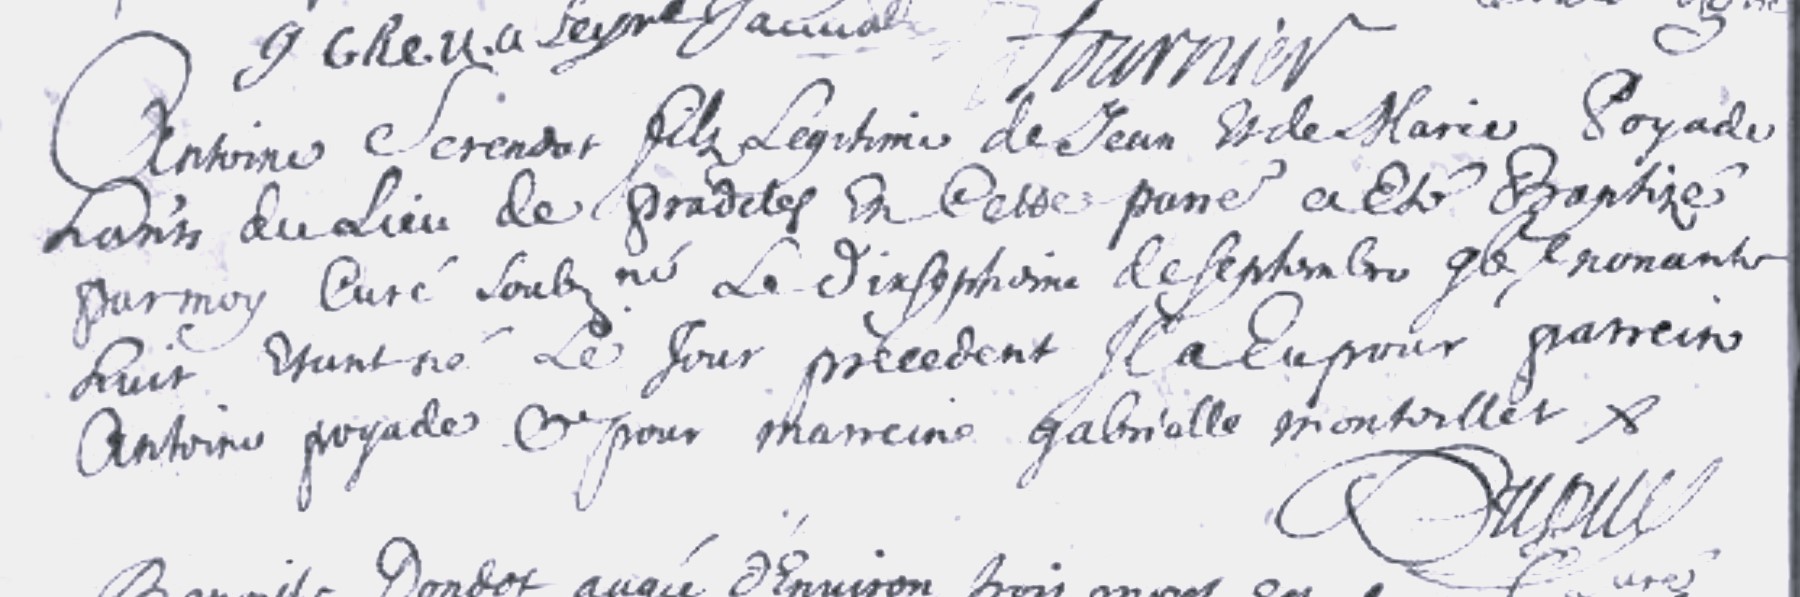 fournier
Antoine Serendat filz Legitime de Jean Et de Marie Poyade
hants du Lieu de pradeles En Cette parre a Eté Baptizé
par moy Curé soubzné Le dixseptieme de septembre gbc nonante
huit Etant né Le Jour precedent Jl a Eu pour parrein
Antoine poyade Et pour marreine gabrielle monteillet
Dupuy
Benoite Dondot augié d'Environ trois
Curé